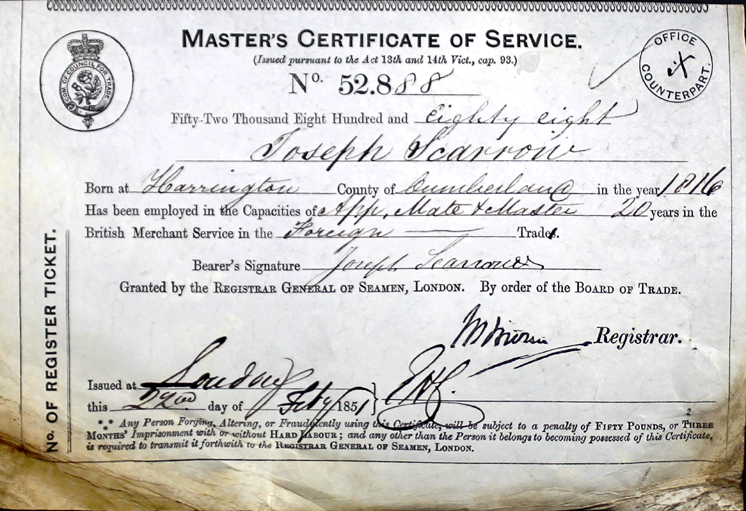 MASTER'S CERTIFICATE OF SERVICE.
(Issued pursuant to the Act 13th and 14th Vict., cap. 93.)
OFFICE
COUNTERPART.
No. 52.888
Fifty-Two Thousand Eight Hundred and Eighty eight
Joseph Scarrow
Born at Harrington County of Cumberland in the year 1816
Has been employed in the Capacities of App, Mate & Master 20 years in the
British Merchant Service in the Foreign Trade.
Bearer's Signature Joseph Scarrow
Granted by the REGISTRAR GENERAL OF SEAMEN, LONDON. By order of the BOARD OF TRADE.
Registrar.
Issued at London
this 22nd day of Feby 1851
No. OF REGISTER TICKET.
*** Any Person Forging, Altering, or Fraudulently using this Certificate, will be subject to a penalty of FIFTY POUNDS, or THREE
MONTHS' Imprisonment with or without HARD LABOUR; and any other than the Person it belongs to becoming possessed of this Certificate,
is required to transmit it forthwith to the REGISTRAR GENERAL OF SEAMEN, LONDON.